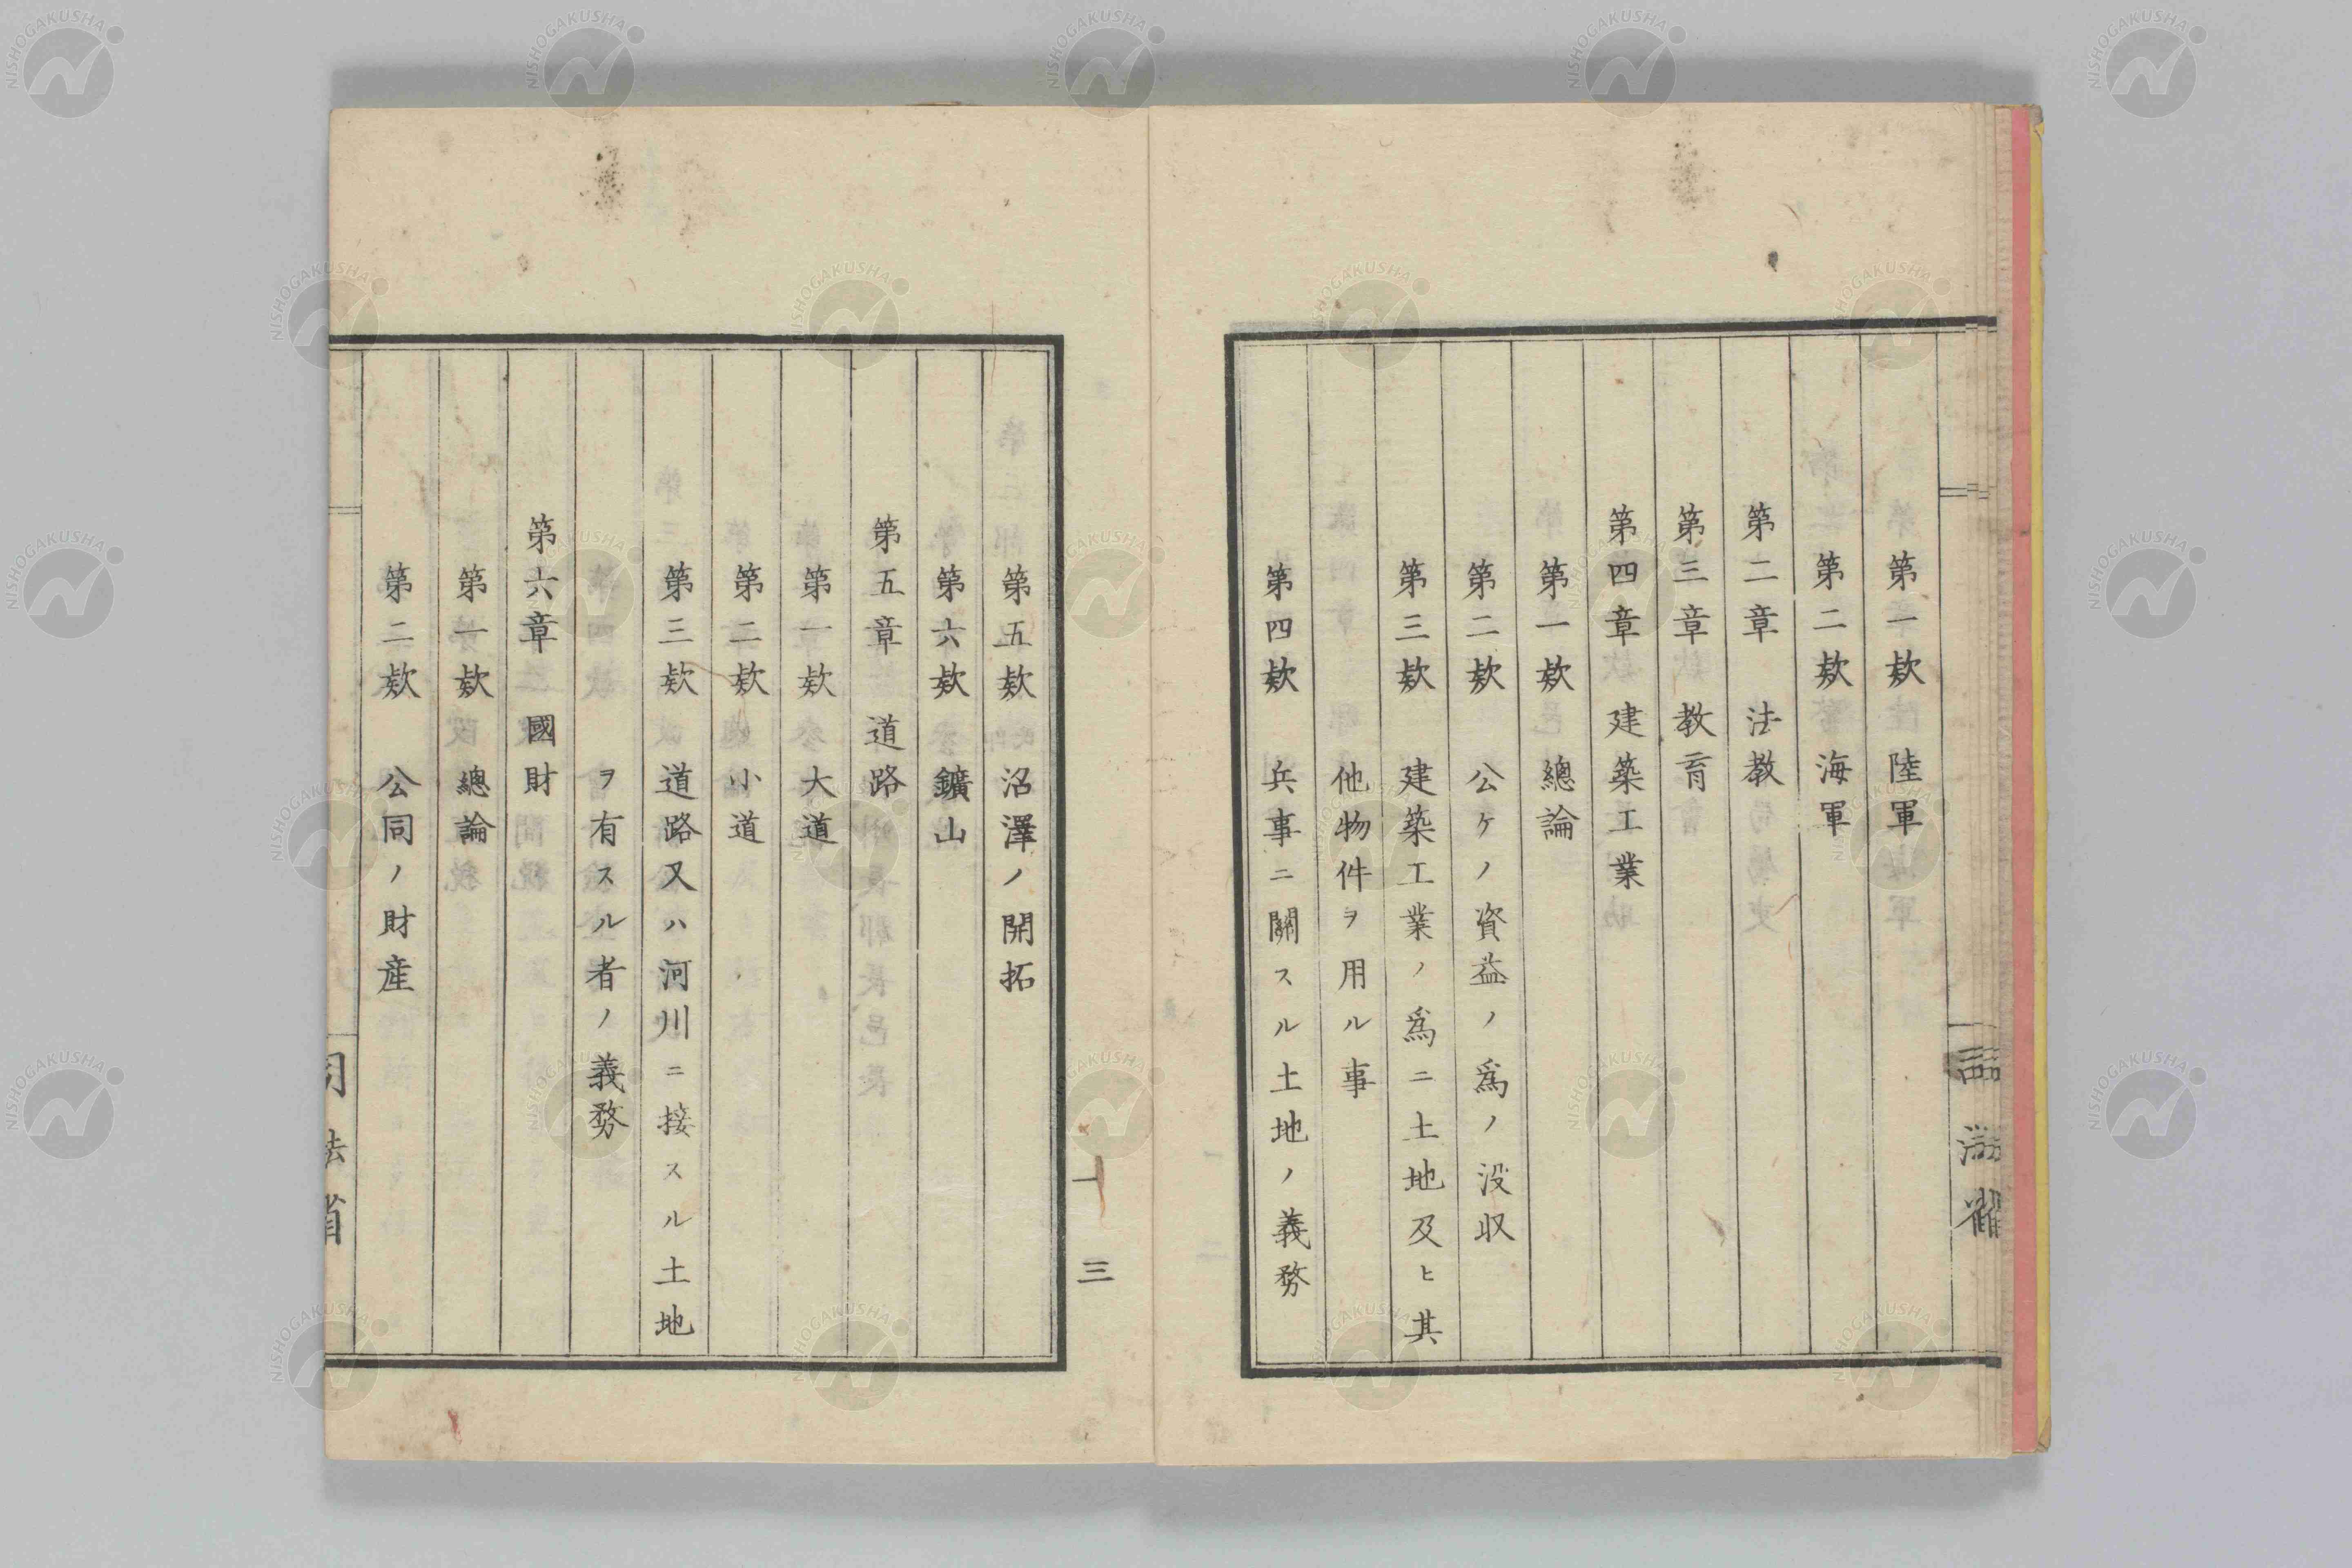 第一欵　陸軍
第二欵　海軍
第二章　法教
第三章　教育
第四章　建築工業
第一欵　總論
第二欵　公ケノ資益ノ爲ノ没収
第三欵　建築工業ノ爲ニ土地及ヒ其
他物件ヲ用ル事
第四欵　兵事ニ關スル土地ノ義務
第五欵　沼澤ノ開拓
第六欵　鑛山
第五章　道路
第一欵　大道
第二欵　小道
第三欵　道路又ハ河川ニ接スル土地
ヲ有スル者ノ義務
第六章　國財
第一欵　總論
第二欵　公同ノ財産
三
司法省
NISHOGAKUSHA